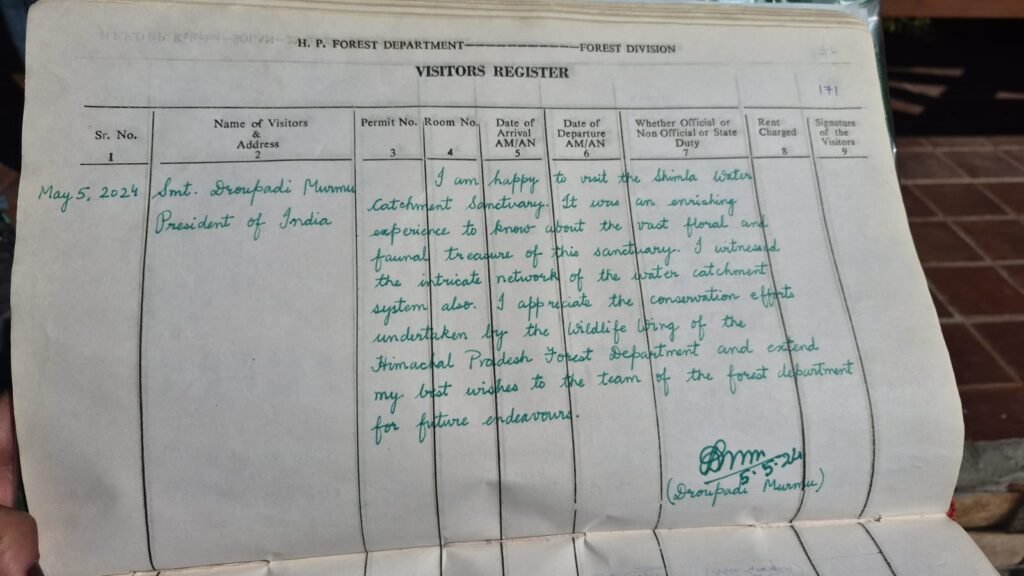 H. P. FOREST DEPARTMENT————————FOREST DIVISION
VISITORS REGISTER
171
Sr. No.
1
Name of Visitors
&
Address
2
Permit No.
3
Room No.
4
Date of
Arrival
AM/AN
5
Date of
Departure
AM/AN
6
Whether Official or
Non Official or State
Duty
7
Rent
Charged
8
Signature
of the
Visitors
9
May 5, 2024
Smt. Droupadi Murmu
President of India
I am happy to visit the Shimla Water
Catchment Sanctuary. It was an enriching
experience to know about the vast floral and
faunal treasure of this sanctuary. I witnessed
the intricate network of the water catchment
system also. I appreciate the conservation efforts
undertaken by the Wildlife Wing of the
Himachal Pradesh Forest Department and extend
my best wishes to the team of the forest department
for future endeavours.
5.5.24
(Droupadi Murmu)